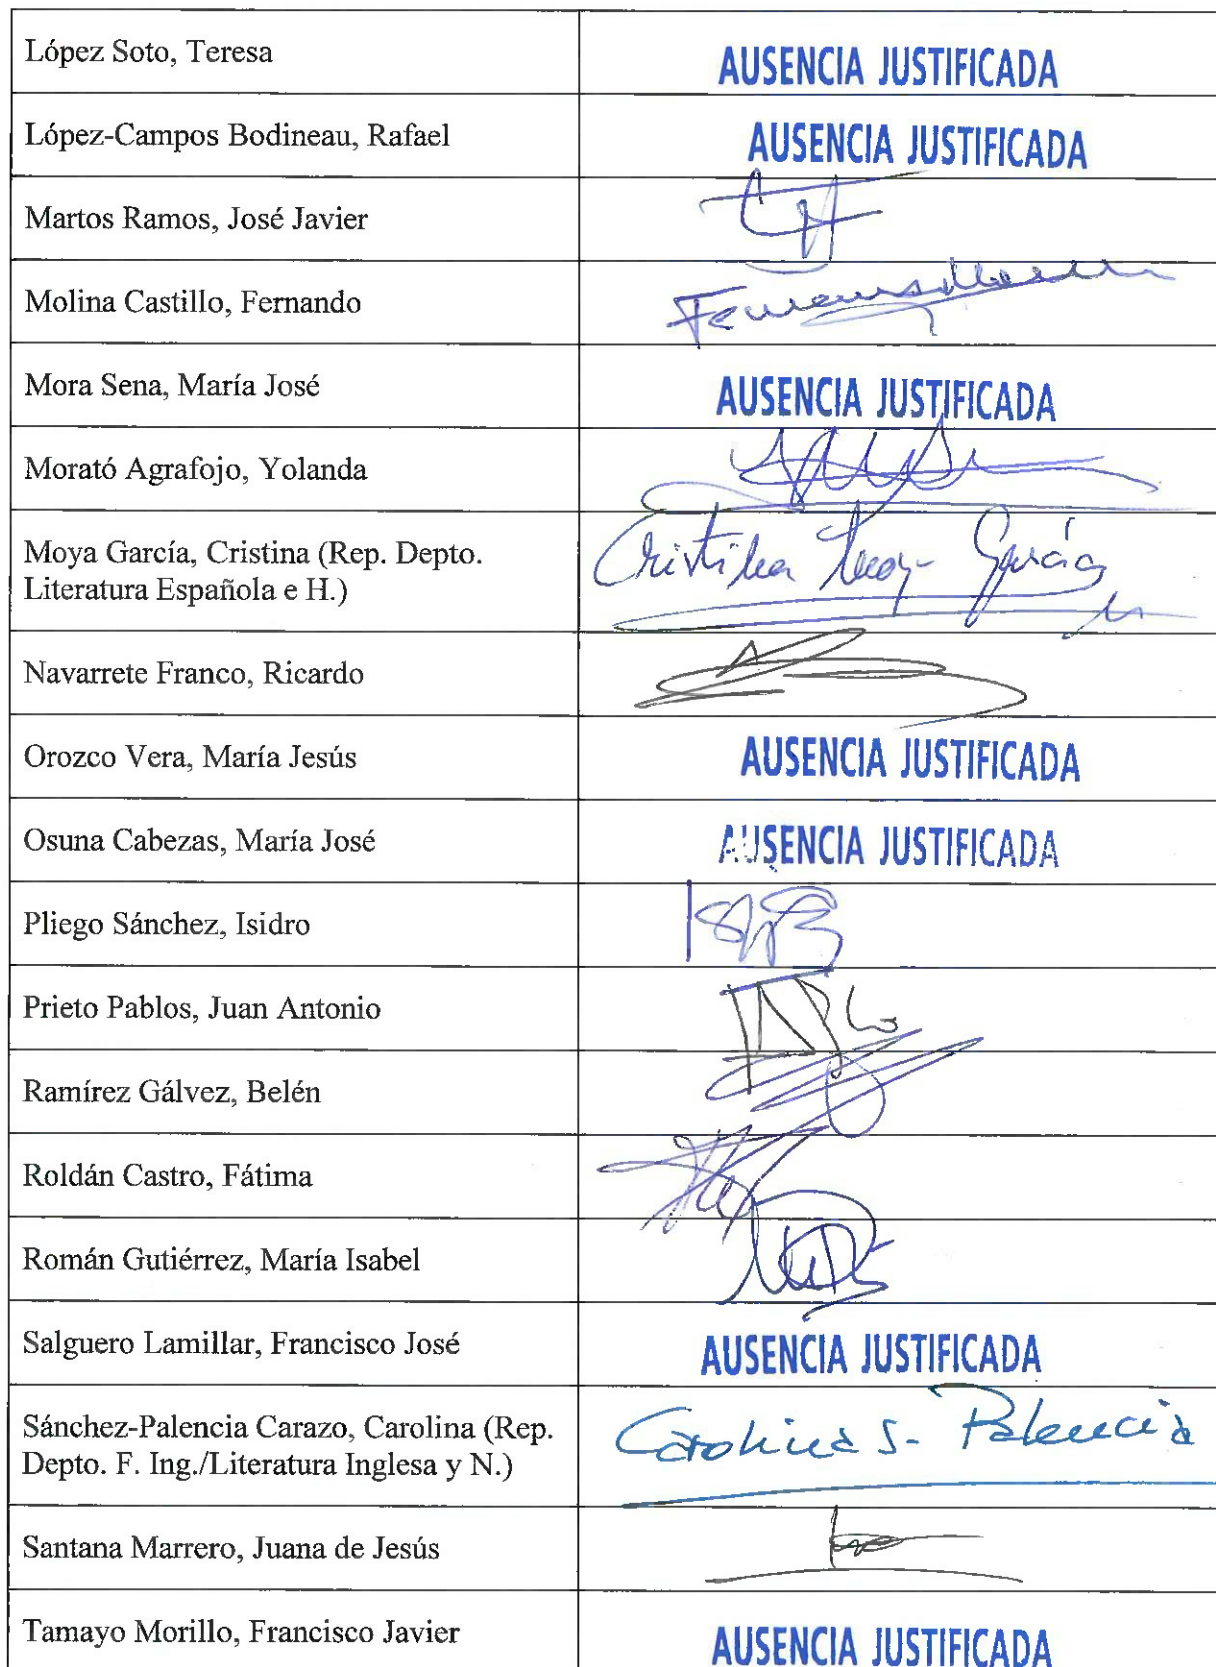 López Soto, Teresa AUSENCIA JUSTIFICADA
López-Campos Bodineau, Rafael AUSENCIA JUSTIFICADA
Martos Ramos, José Javier
Molina Castillo, Fernando
Mora Sena, María José AUSENCIA JUSTIFICADA
Morató Agrafojo, Yolanda
Moya García, Cristina (Rep. Depto. Cristina Moya García
Literatura Española e H.)
Navarrete Franco, Ricardo
Orozco Vera, María Jesús AUSENCIA JUSTIFICADA
Osuna Cabezas, María José AUSENCIA JUSTIFICADA
Pliego Sánchez, Isidro
Prieto Pablos, Juan Antonio
Ramírez Gálvez, Belén
Roldán Castro, Fátima
Román Gutiérrez, María Isabel
Salguero Lamillar, Francisco José AUSENCIA JUSTIFICADA
Sánchez-Palencia Carazo, Carolina (Rep. Carolina S- Palencia
Depto. F. Ing./Literatura Inglesa y N.)
Santana Marrero, Juana de Jesús
Tamayo Morillo, Francisco Javier AUSENCIA JUSTIFICADA